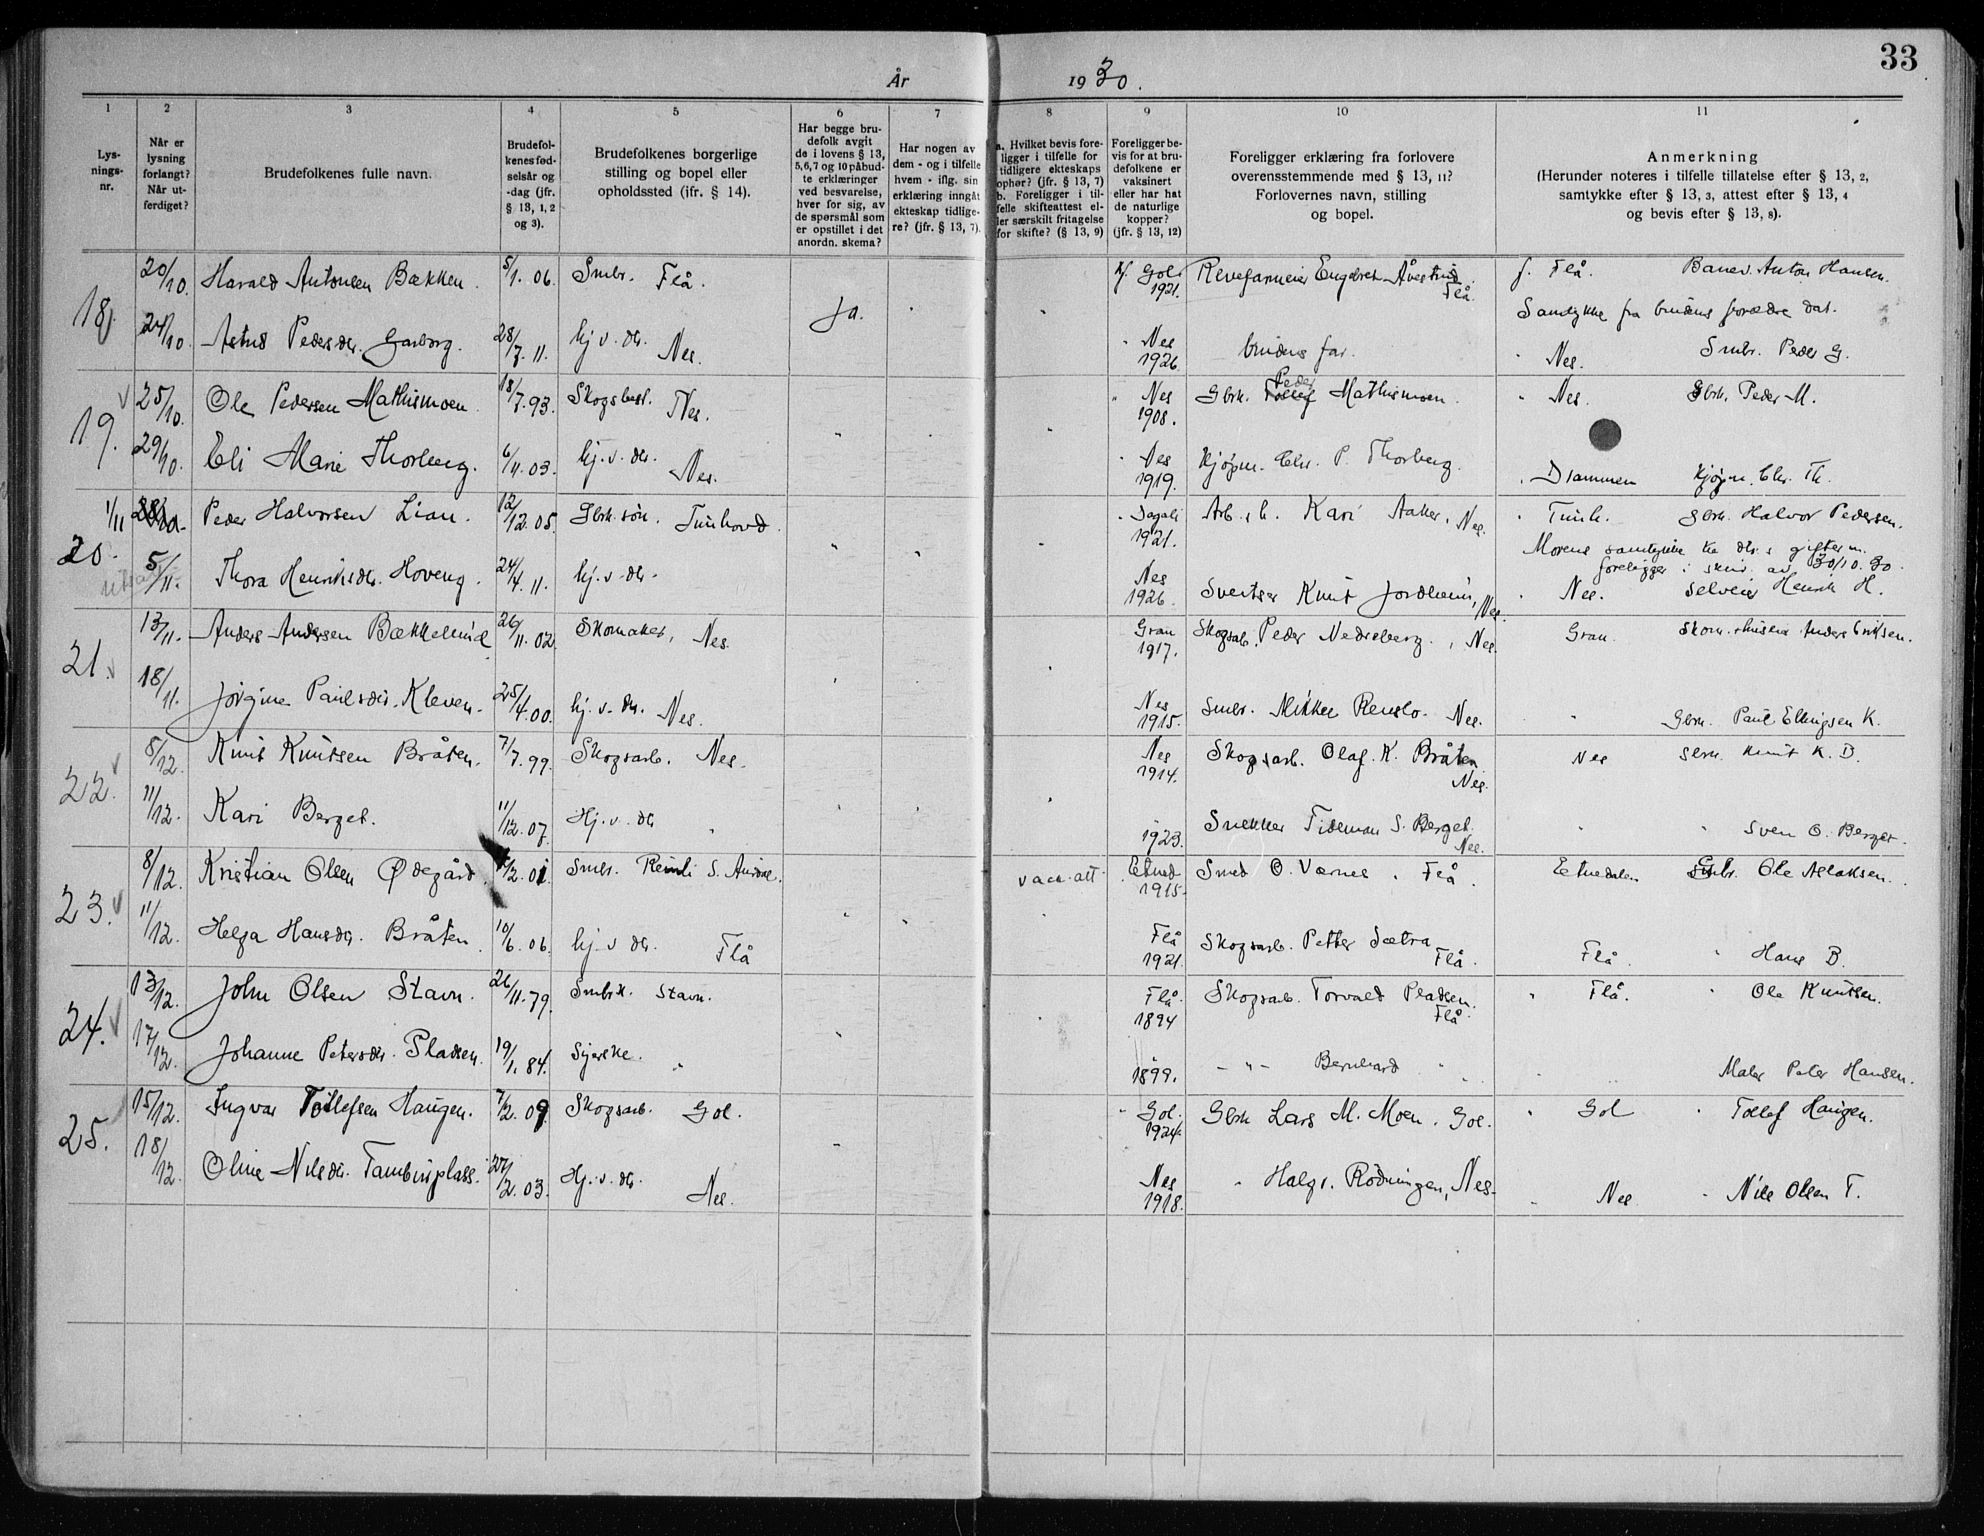 33
År 1930.
1 2 3 4 5 6 7 8 9 10 11
Lys-
nings-
nr.
Når er
lysning
forlangt?
Når ut-
ferdiget?
Brudefolkenes fulle navn.
Brudefol-
kenes fød-
selsår og
-dag (jfr.
§ 13, 1, 2
og 3).
Brudefolkenes borgerlige
stilling og bopel eller
opholdssted (ifr. § 14).
Har begge bru-
defolk avgit
de i lovens § 13,
5,6,7 og 10 påbud-
te erklæringer
ved besvarelse,
hver for sig, av
de spørsmål som
er opstillet i det
anordn. skema?
Har nogen av
dem - og i tilfelle
hvem - iflg. sin
erklæring inngått
ekteskap tidlige-
re? (jfr. § 13, 7).
a. Hvilket bevis fore-
ligger i tilfelle for
tidligere ekteskaps
ophør? (jfr. § 13, 7)
b. Foreligger i til-
felle skifteattest el-
ler særskilt fritagelse
for skifte? (§ 13, 9)
Foreligger be-
vis for at bru-
defolkene er
vaksinert
eller har hat
de naturlige
kopper?
(jfr. § 13, 12)
Foreligger erklæring fra forlovere
overensstemmende med § 13, 11?
Forlovernes navn, stilling
og bopel.
Anmerkning
(Herunder noteres i tilfelle tillatelse efter § 13, 2,
samtykke efter § 13, 3, attest efter § 13, 4
og bevis efter § 13, 8).
18 20/10. Harald Antonsen Bækken. 5/1. 06. Smbr. Flå. Ja. Gol 1921. Revefarmeier Engebret Åvestrud Flå. f. Flå. Banev. Anton Hansen.
Samtykke fra brudens forældre dat.
24/10 Astrid Pedersdr. Garborg. 28/7. 11. hj. v. dr. Nes. Nes 1926. brudens far. " Nes. Smbr. Peder G.
19. 25/10. Ole Pedersen Mathismoen. 18/7. 93. Skogsbest. Nes. " Nes 1908. Gbrk. Peder Mathismoen. " Nes. Gbrk. Peder M.
29/10. Eli Marie Thorberg. 6/11. 03. hj. v. dr. Nes. " Nes 1919. Kjøpm. Chr. P. Thorberg. . Drammen Kjøpm. Chr. Th.
20. 1/11 Peder Halvorsen Lian. 12/12. 05. Gbrk. søn. Tunhovd. " Dagali 1921. Arb. Kari Aaker, Nes. " Tunh. Gbrk. Halvor Pedersen.
Morens samtykke til dr.s gifterm.
foreligger i skriv. av 30/10. 30.
5/11. Thora Henriksdr. Hoveng. 24/4. 11. hj. v. dr. Nes 1926. Sveitser Knut Jordheim, Nes. " Nes. Selveier Henrik H.
21. 13/11. Anders Andersen Bækkelund 26/11. 02. Skomaker, Nes. Gran 1917. Skogsarb. Peder Nedreberg. , Nes. Gran. Skom. Anders Eriksen.
18/11. Jørgine Paulsdr. Kleven. 25/4. 00. hj. v. dr. Nes. Nes 1915. Smbr. Mikkel Renslo. Nes. " Gbrk. Paul Ellingsen K.
22. 8/12. Knut Knutsen Bråten. 7/7. 99. Skogsarb. Nes. Nes 1914. Skogsarb. Olaf K. Bråten Nes. Nes Gbrk. Knut K. B.
11/12. Kari Berget. 11/12. 07. Hj. v. dr " " 1923. Snekker Tideman S. Berget. Nes. " " Sven O. Berget.
23. 8/12. Kristian Olsen Ødegård. /2. 01 Smbr. Reinli S. Aurdal. vacc. att Etned. 1915. Smed O. Værnes. Flå. Etnedalen Gbr. Ole Aslaksen.
11/12. Helga Hansdr. Bråten. 10/6. 06. hj. v dr. Flå Flå 1921. Skogsarb. Petter Sætra Flå. Flå. " Hans B.
24. 13/12. John Olsen Stavn. 26/11. 79. Smbrk. Stavn. Flå. 1894 Skogsarb. Torvald Pladsen. Flå. " Flå. " Ole Knutsen.
17/12. Johanne Petersdr. Pladsen. 19/1. 84. Syerske. " 1899. - " - Bernhard " " Maler Peter Hansen.
25. 15/12. Ingvar Tollefsen Haugen. 7/2. 09 Skogsarb. Gol. " Gol. 1924. Gbrk Lars M. Moen. Gol. " Gol " Tollef Haugen.
18/12. Oline Nilsdr. Tamburplass. 27/2. 03. Hj. v. dr. Nes. Nes 1918. " Halgr. Rødningen, Nes. " Nes " Nils Olsen T.